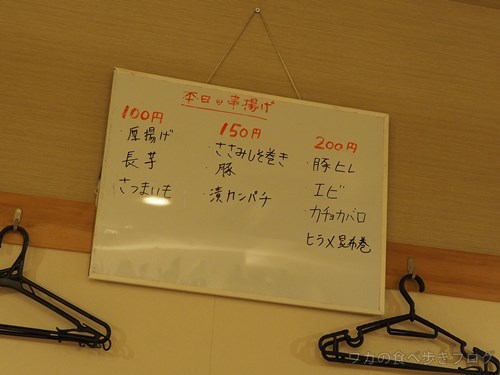 本日の串揚げ
100円
・厚揚げ
長芋
さつまいも
150円
・ささみしそ巻き
豚
・漬カンパチ
200円
・豚ヒレ
エビ
・カチョカバロ
ヒラメ昆布巻
ワカの食べ歩きブログ